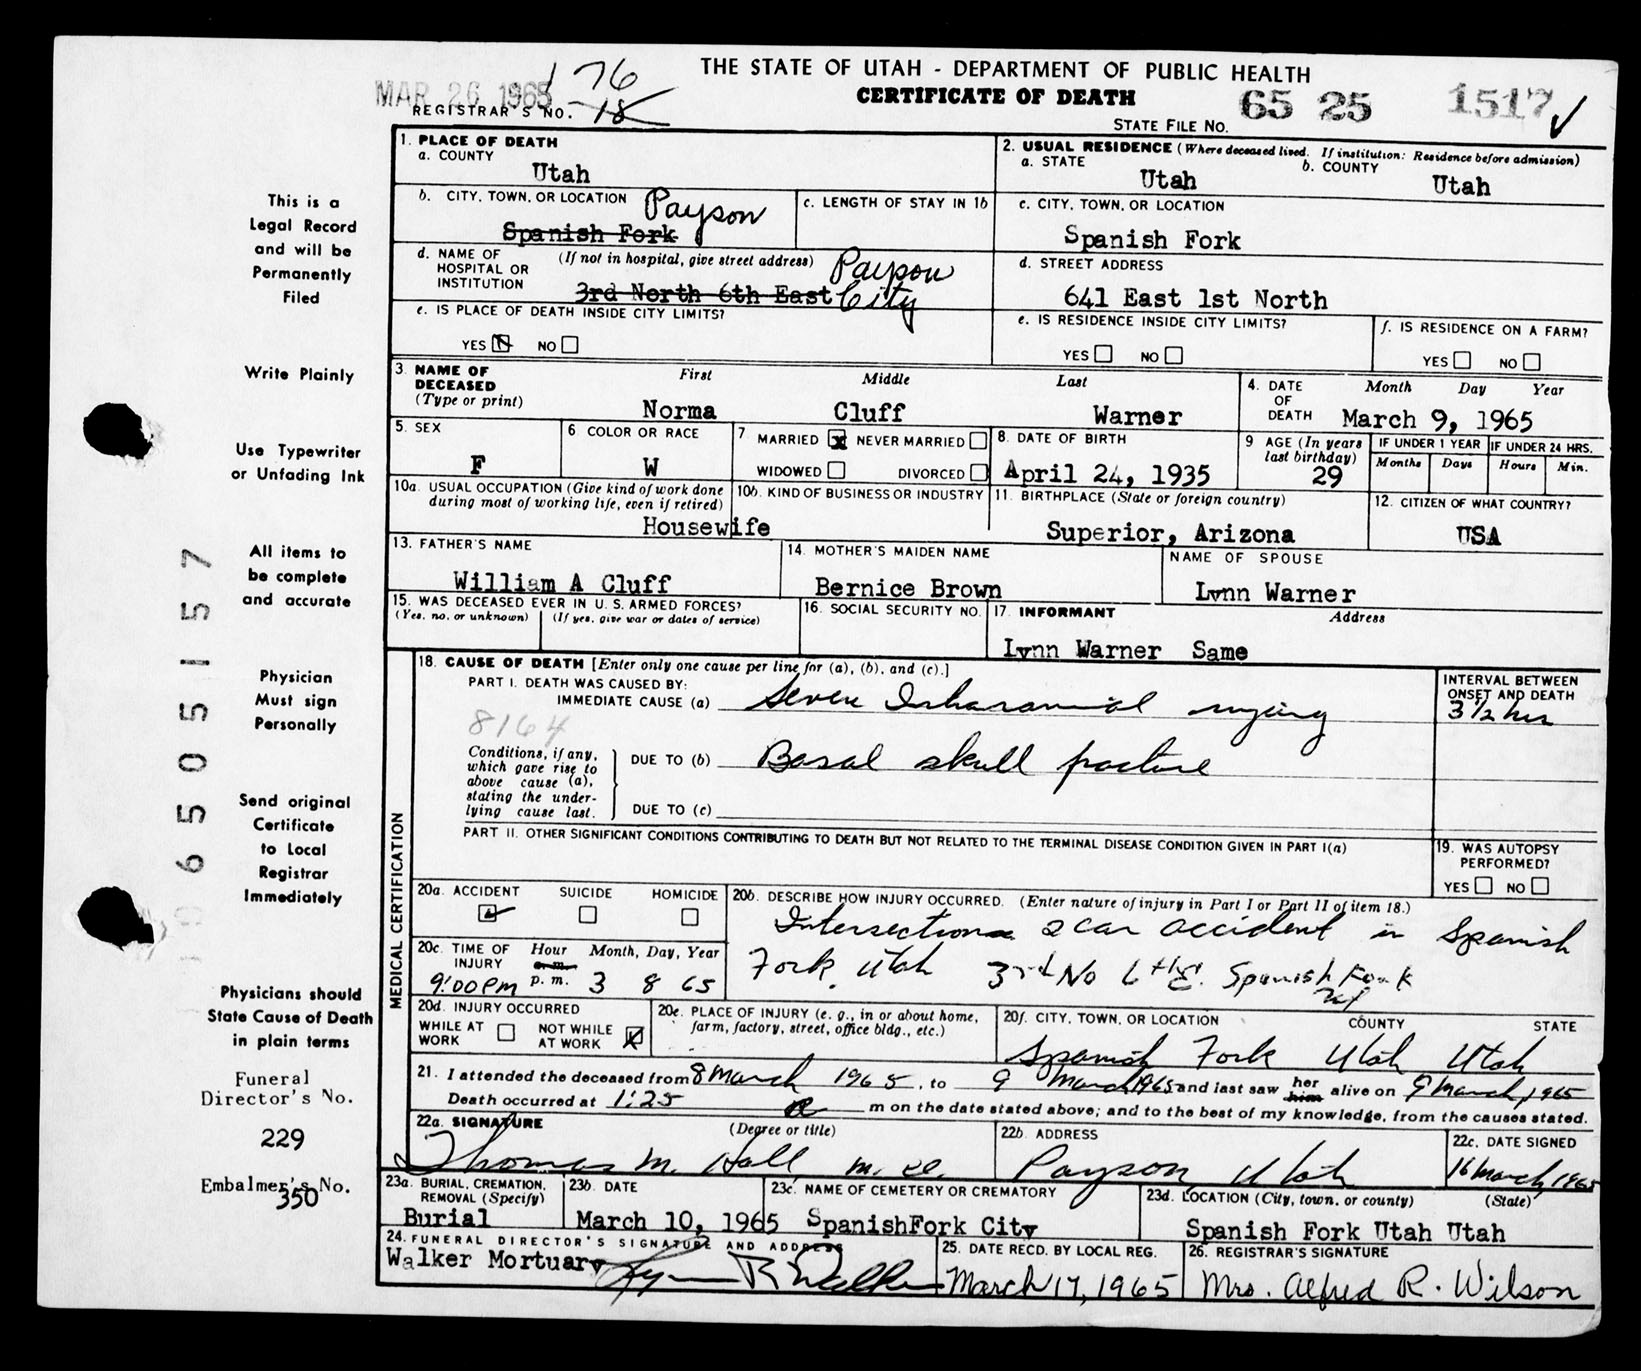 THE STATE OF UTAH - DEPARTMENT OF PUBLIC HEALTH
CERTIFICATE OF DEATH
MAR 26 1965
REGISTRAR'S NO. 176
18
STATE FILE NO. 65 25 1517
This is a
Legal Record
and will be
Permanently
Filed
Write Plainly
Use Typewriter
or Unfading Ink
All items to
be complete
and accurate
Physician
Must sign
Personally
Send original
Certificate
to Local
Registrar
Immediately
Physicians should
State Cause of Death
in plain terms
Funeral
Director's No.
229
Embalmer's No.
350
650 5157
1. PLACE OF DEATH
a. COUNTY
Utah
2. USUAL RESIDENCE (Where deceased lived. If institution: Residence before admission)
a. STATE
Utah
b. COUNTY
Utah
b. CITY, TOWN, OR LOCATION
Payson
Spanish Fork
c. LENGTH OF STAY IN 1b
c. CITY, TOWN, OR LOCATION
Spanish Fork
d. NAME OF HOSPITAL OR INSTITUTION
(If not in hospital, give street address)
Payson
3rd North 6th East City
d. STREET ADDRESS
641 East 1st North
e. IS PLACE OF DEATH INSIDE CITY LIMITS?
YES NO
e. IS RESIDENCE INSIDE CITY LIMITS?
YES NO
f. IS RESIDENCE ON A FARM?
YES NO
3. NAME OF DECEASED
(Type or print)
First Middle Last
Norma Cluff Warner
4. DATE OF DEATH
Month Day Year
March 9, 1965
5. SEX
F
6 COLOR OR RACE
W
7 MARRIED X NEVER MARRIED
WIDOWED DIVORCED
8. DATE OF BIRTH
April 24, 1935
9 AGE (In years last birthday)
29
IF UNDER 1 YEAR
Months Days
IF UNDER 24 HRS.
Hours Min.
10a. USUAL OCCUPATION (Give kind of work done during most of working life, even if retired)
Housewife
10b. KIND OF BUSINESS OR INDUSTRY
11. BIRTHPLACE (State or foreign country)
Superior, Arizona
12. CITIZEN OF WHAT COUNTRY?
USA
13. FATHER'S NAME
William A Cluff
14. MOTHER'S MAIDEN NAME
Bernice Brown
NAME OF SPOUSE
Lynn Warner
15. WAS DECEASED EVER IN U. S. ARMED FORCES?
(Yes, no, or unknown) (If yes, give war or dates of service)
16. SOCIAL SECURITY NO.
17. INFORMANT Address
Lynn Warner Same
MEDICAL CERTIFICATION
18. CAUSE OF DEATH [Enter only one cause per line for (a), (b), and (c).]
PART I. DEATH WAS CAUSED BY:
IMMEDIATE CAUSE (a)
8164
INTERVAL BETWEEN ONSET AND DEATH
3 1/2 hrs
Conditions, if any, which gave rise to above cause (a), stating the underlying cause last.
DUE TO (b) Basal skull fracture
DUE TO (c)
PART II. OTHER SIGNIFICANT CONDITIONS CONTRIBUTING TO DEATH BUT NOT RELATED TO THE TERMINAL DISEASE CONDITION GIVEN IN PART I(a)
19. WAS AUTOPSY PERFORMED?
YES NO
20a. ACCIDENT SUICIDE HOMICIDE
20b. DESCRIBE HOW INJURY OCCURRED. (Enter nature of injury in Part I or Part II of item 18.)
Intersection 2 car accident in Spanish
Fork, Utah 3rd No 6th E. Spanish Fork
20c. TIME OF INJURY
Hour Month, Day, Year
a.m.
p.m.
9:00 PM 3 8 65
20d. INJURY OCCURRED
WHILE AT WORK NOT WHILE AT WORK
20e. PLACE OF INJURY (e. g., in or about home, farm, factory, street, office bldg., etc.)
20f. CITY, TOWN, OR LOCATION COUNTY STATE
Spanish Fork Utah Utah
21. I attended the deceased from 8 March 1965, to 9 March 1965 and last saw her him alive on 9 March, 1965
Death occurred at 1:25 a m on the date stated above; and to the best of my knowledge, from the causes stated.
22a. SIGNATURE (Degree or title)
Thomas M. Hall M.D.
22b. ADDRESS
Payson, Utah
22c. DATE SIGNED
16 March, 1965
23a. BURIAL, CREMATION, REMOVAL (Specify)
Burial
23b. DATE
March 10, 1965
23c. NAME OF CEMETERY OR CREMATORY
SpanishFork City
23d. LOCATION (City, town, or county) (State)
Spanish Fork Utah Utah
24. FUNERAL DIRECTOR'S SIGNATURE AND ADDRESS
Walker Mortuary
25. DATE RECD. BY LOCAL REG.
March 17, 1965
26. REGISTRAR'S SIGNATURE
Mrs. Alfred R. Wilson